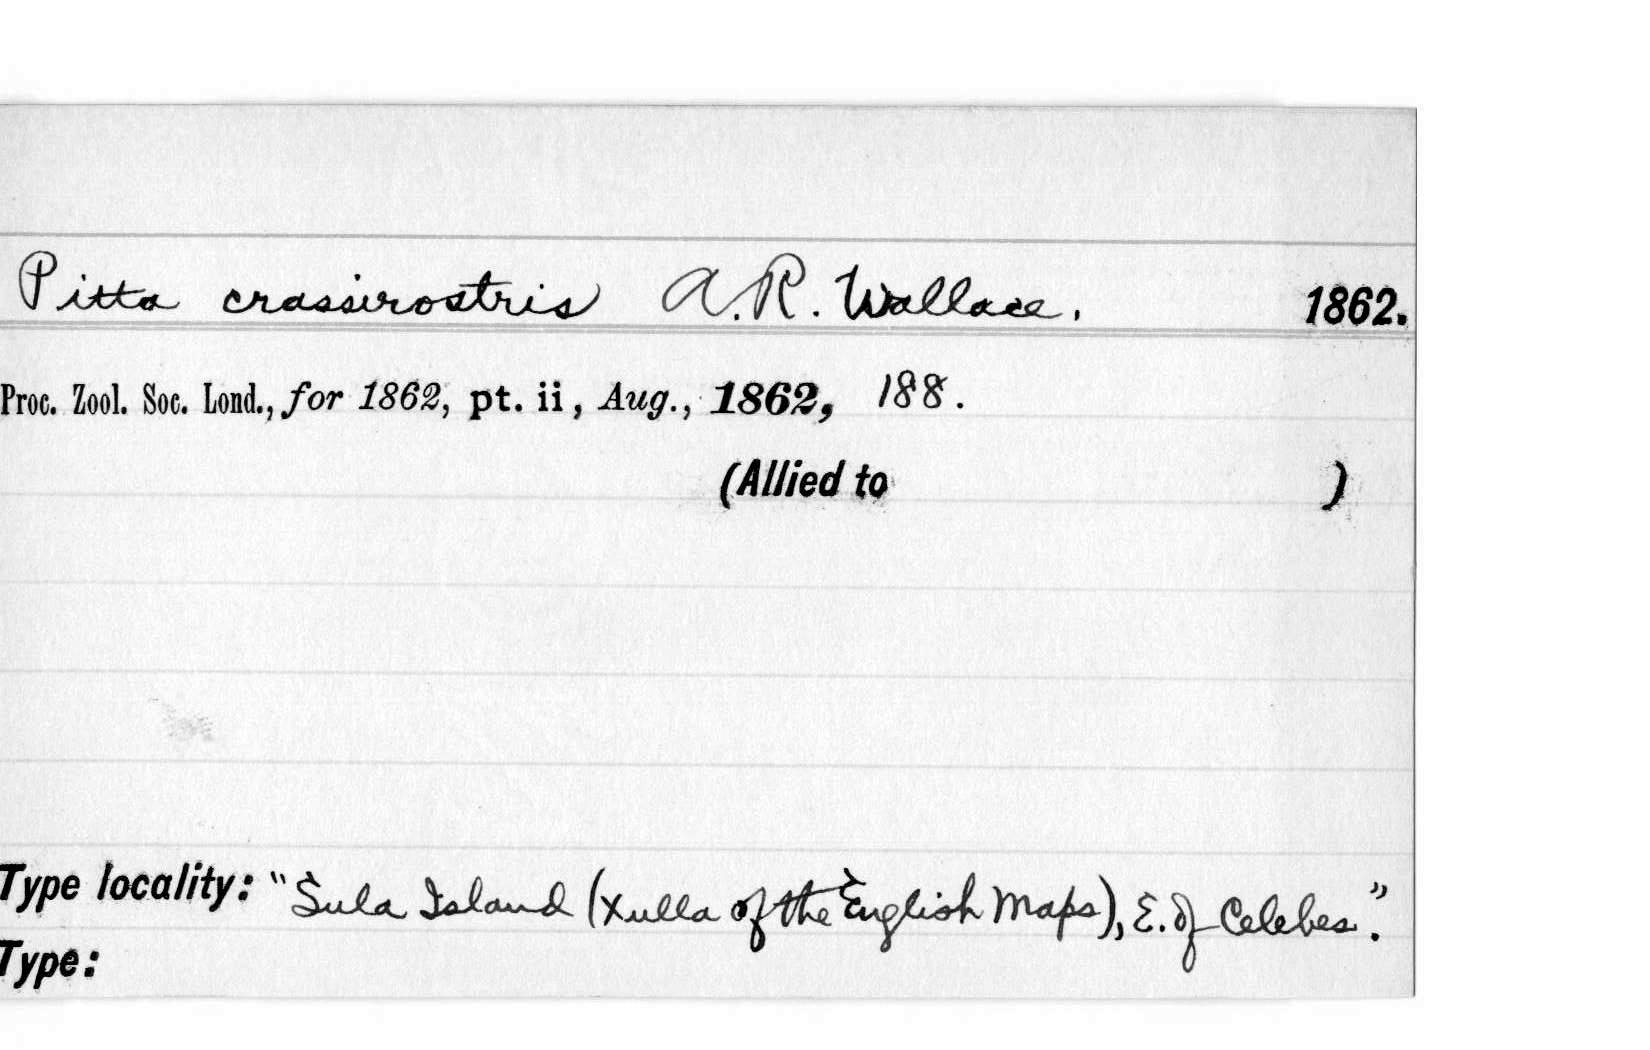 Pitta crassirostris A. R. Wallace. 1862.
Proc. Zool. Soc. Lond., for 1862, pt. ii, Aug., 1862, 188.
(Allied to )
Type locality: "Sula Island (Xulla of the English Maps), E. of Celebes."
Type: